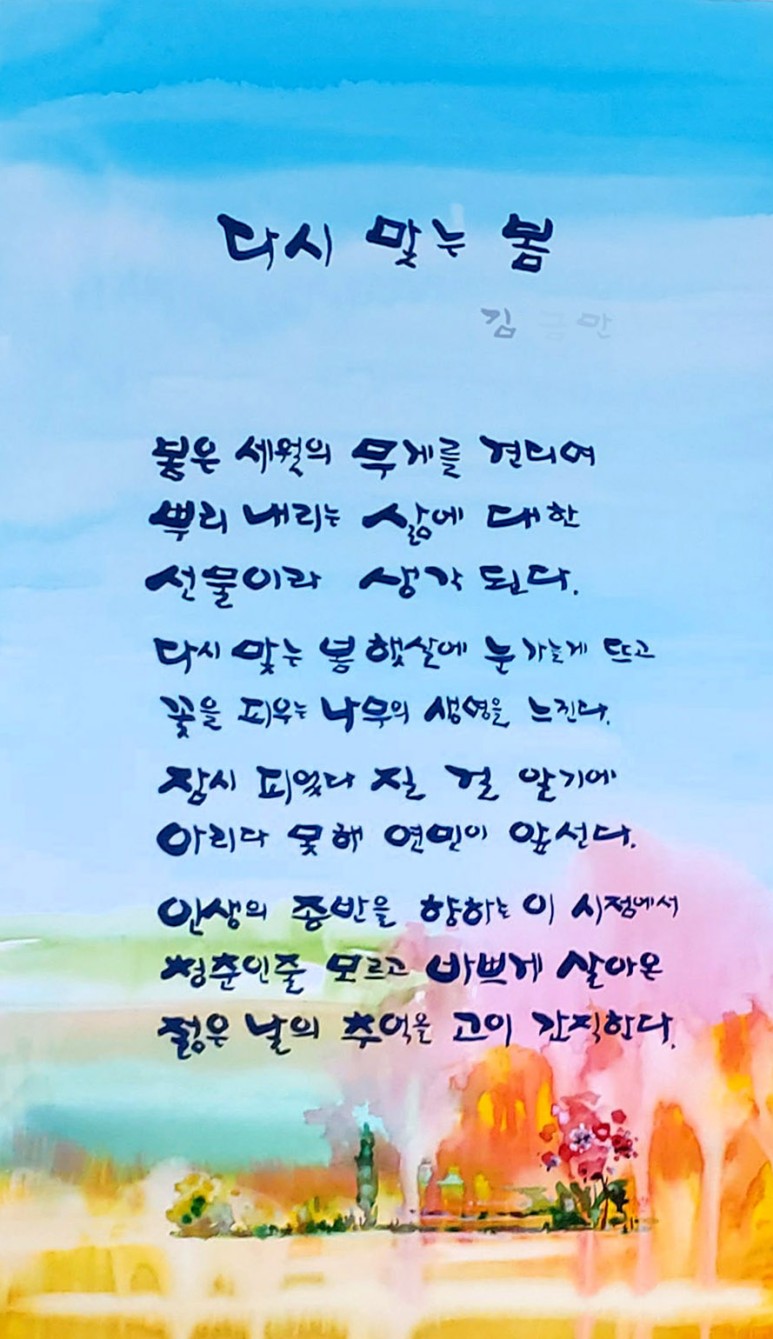 다시 맞는 봄
김 금 만
봄은 세월의 무게를 견디여
뿌리 내리는 삶에 대한
선물이라 생각 된다.
다시 맞는 봄 햇살에 눈 가늘게 뜨고
꽃을 피우는 나무의 생명을 느낀다.
잠시 피었다 질 걸 알기에
아리다 못해 연민이 앞선다.
인생의 종반을 향하는 이 시점에서
청춘인줄 모르고 바쁘게 살아온
젊은 날의 추억을 고이 간직한다.